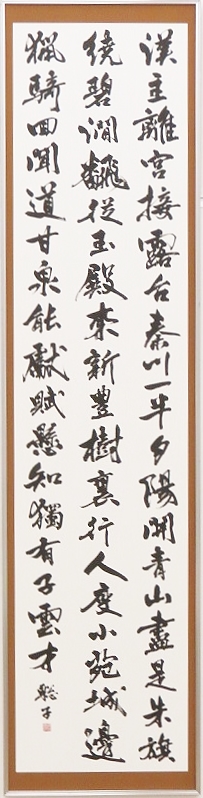 漢主離宮接露台秦川一半夕陽開青山盡是朱旗
繞碧澗飜從玉殿來新豐樹裏行人度小苑城邊
獵騎回聞道甘泉能献賦懸知獨有子雲才
聡子